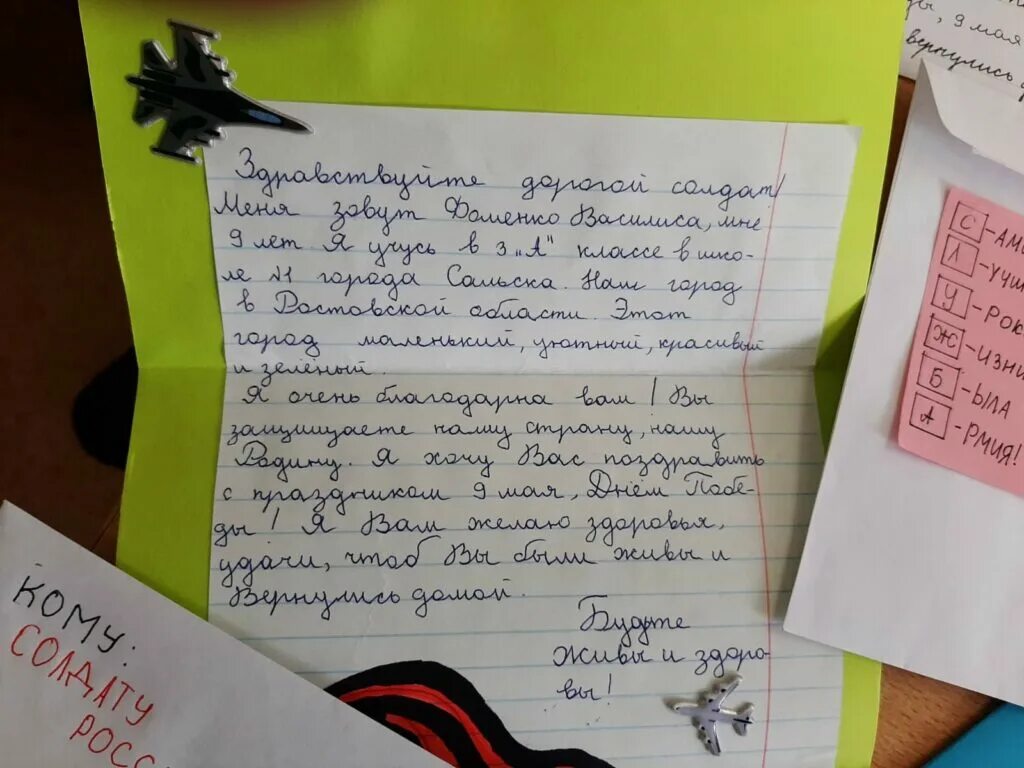 Здравствуйте дорогой солдат!
Меня зовут Фоменко Василиса, мне
9 лет. Я учусь в 3 „А" классе в шко-
ле №1 города Сальска. Наш город
в Ростовской области. Этот
город маленький, уютный, красивый
и зелёный.
Я очень благодарна вам! Вы
защищаете нашу страну, нашу
Родину. Я хочу Вас поздравить
с праздником 9 мая, Днём Побе-
ды! Я Вам желаю здоровья,
удачи, чтоб Вы были живы и
Вернулись домой.
Будте
живы и здоро-
вы!
КОМУ:
СОЛДАТУ
РОСС
9 мая
вернулись
С -АМ
Л -УЧШ
У -РОК
Ж -ИЗНИ
Б -ЫЛА
А -РМИЯ!